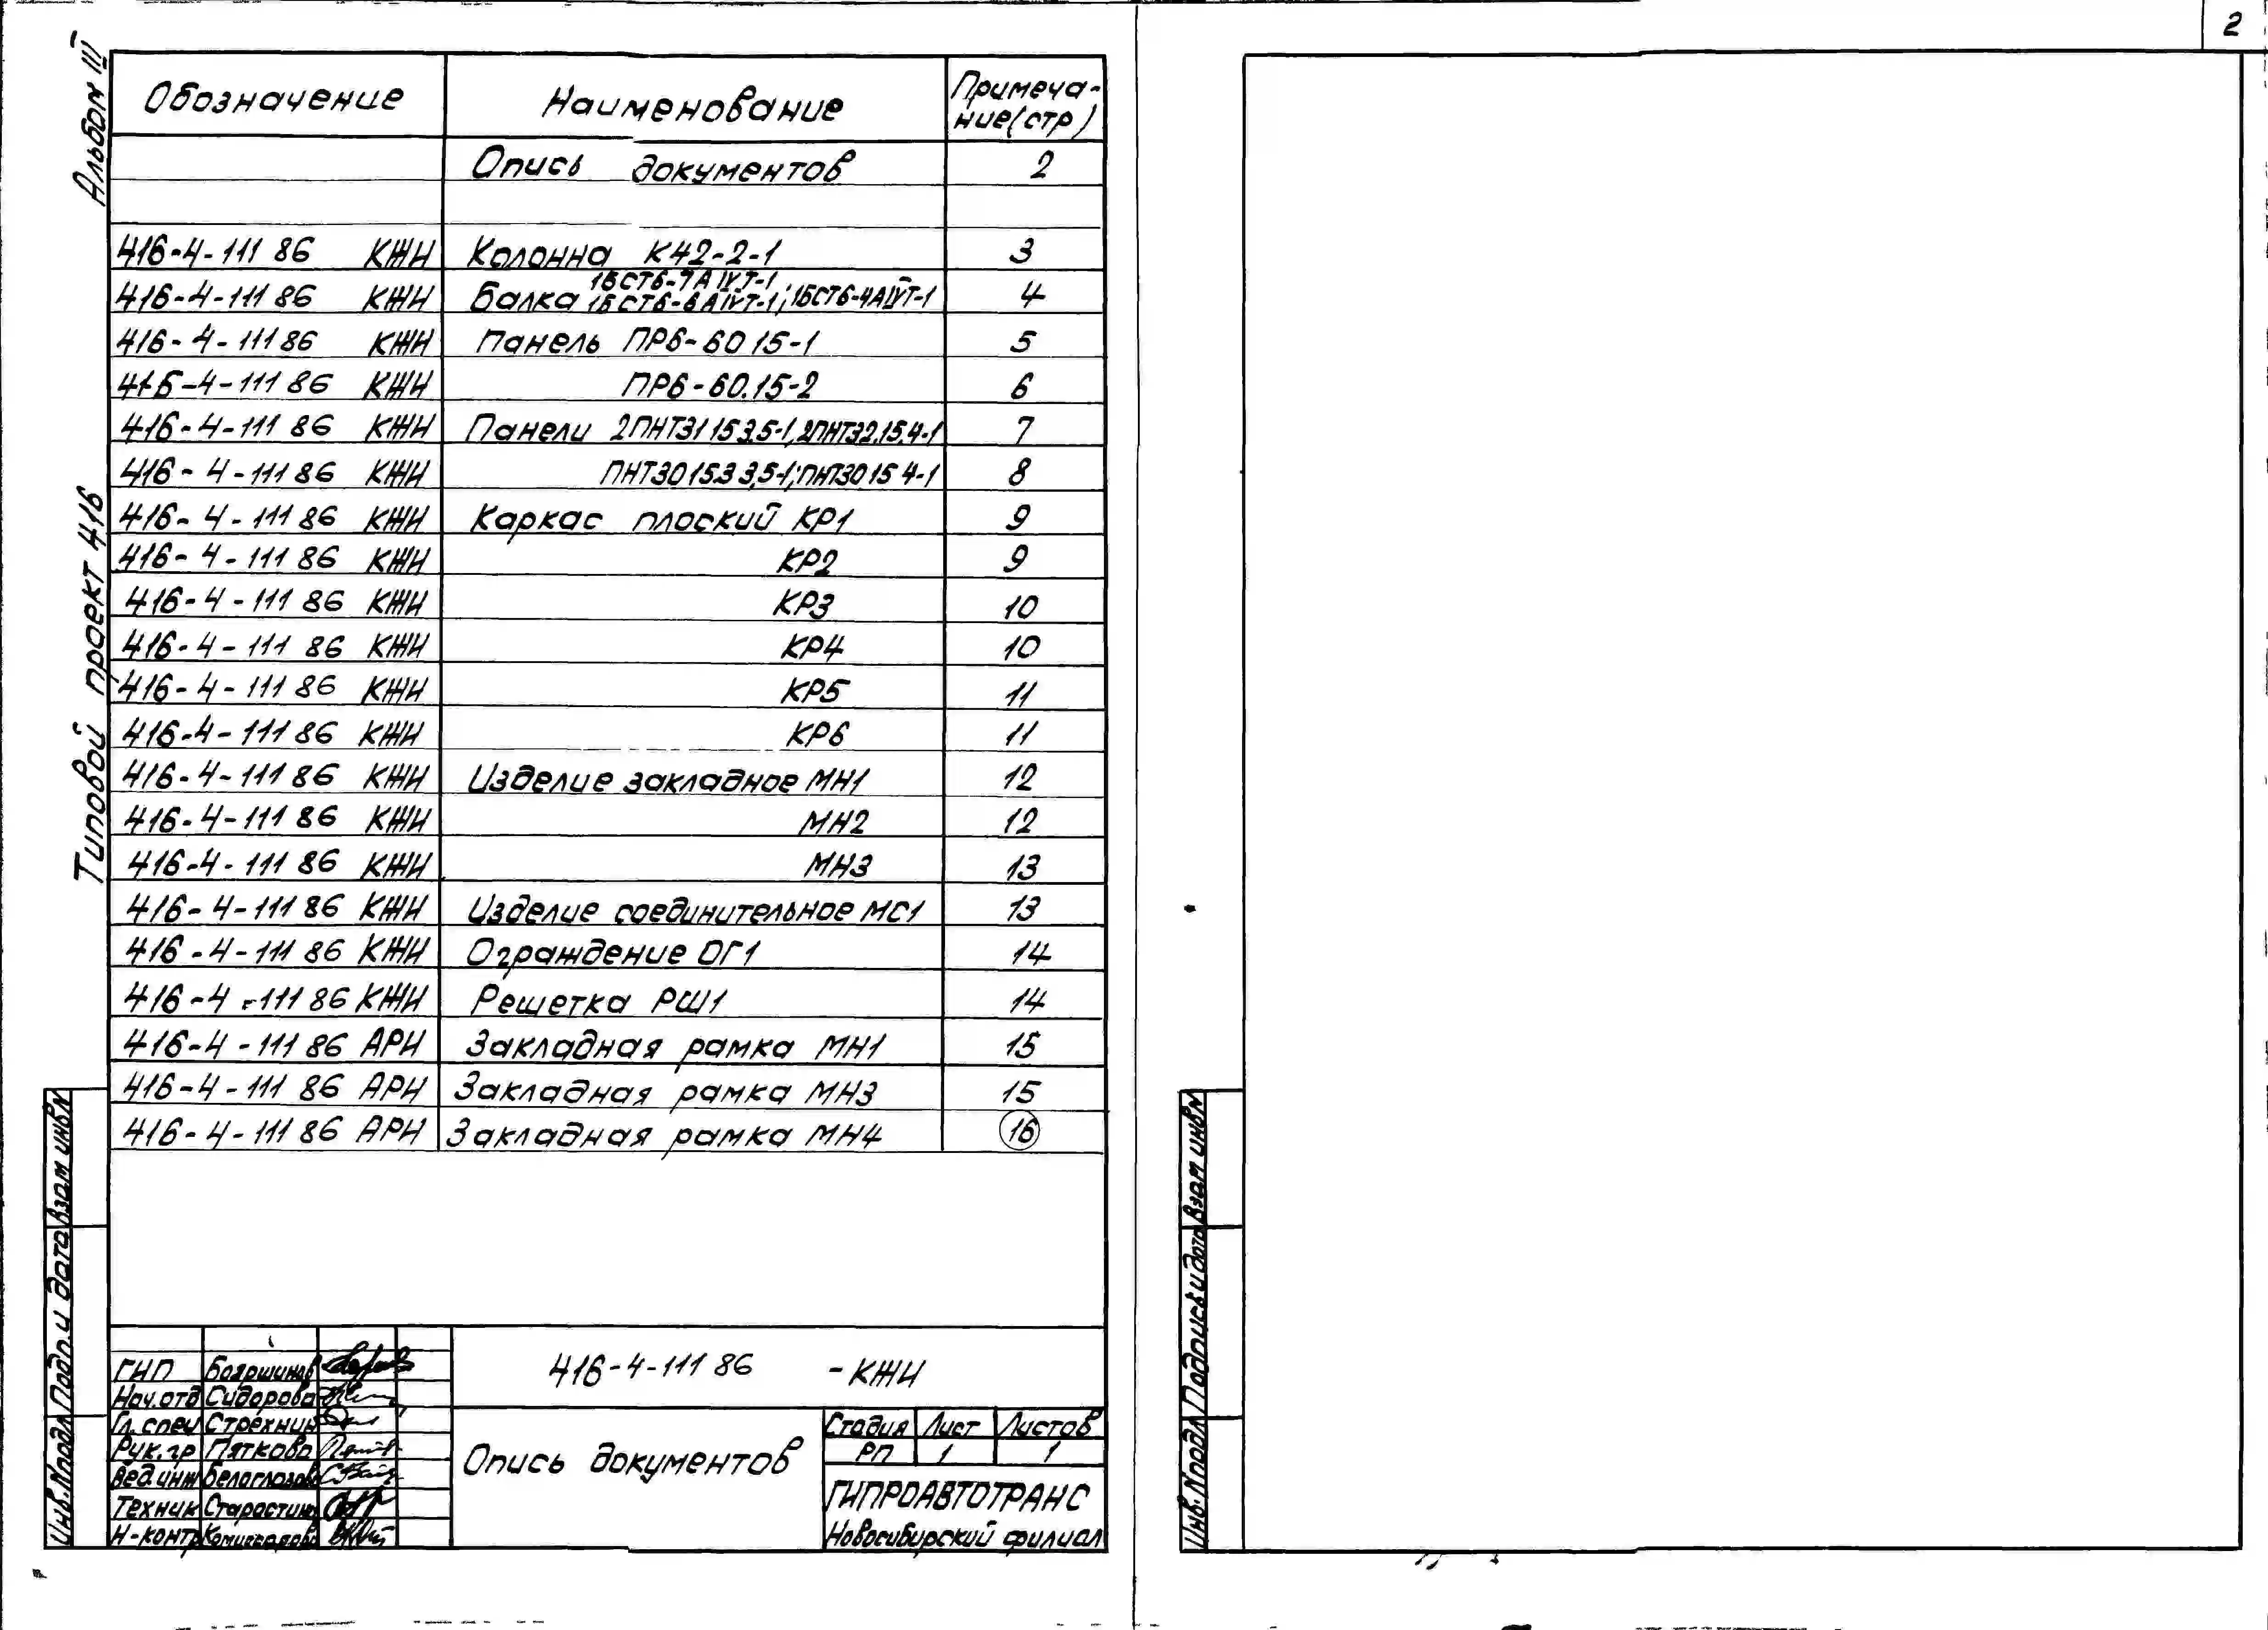 2
Альбом III
Типовой проект 416
Обозначение Наименование Примеча-
ние(стр)
Опись документов 2
416-4-111 86 КЖИ Колонна К42-2-1 3
1БСТ6-7АIVТ-1
416-4-111 86 КЖИ Балка 1БСТ6-6АIVТ-1; 1БСТ6-4АIVТ-1 4
416-4-111 86 КЖИ Панель ПР6-60 15-1 5
416-4-111 86 КЖИ ПР6-60.15-2 6
416-4-111 86 КЖИ Панели 2ПНТ31 15 3,5-1, 2ПНТ32.15.4-1 7
416-4-111 86 КЖИ ПНТ30 15.3 3,5-1; ПНТ30 15 4-1 8
416-4-111 86 КЖИ Каркас плоский КР1 9
416-4-111 86 КЖИ КР2 9
416-4-111 86 КЖИ КР3 10
416-4-111 86 КЖИ КР4 10
416-4-111 86 КЖИ КР5 11
416-4-111 86 КЖИ КР6 11
416-4-111 86 КЖИ Изделие закладное МН1 12
416-4-111 86 КЖИ МН2 12
416-4-111 86 КЖИ МН3 13
416-4-111 86 КЖИ Изделие соединительное МС1 13
416-4-111 86 КЖИ Ограждение ОГ1 14
416-4-111 86 КЖИ Решетка РШ1 14
416-4-111 86 АРИ Закладная рамка МН1 15
416-4-111 86 АРИ Закладная рамка МН3 15
416-4-111 86 АРИ Закладная рамка МН4 16
416-4-111 86 -КЖИ
ГИП Бояршинов
Нач.отд Сидорова
Гл.спец Стрехнин
Рук.гр Пяткова
Вед.инж Белоглазова
Техник Старостина
Н-контр Комиссарова
Опись документов
Стадия Лист Листов
РП 1 1
ГИПРОАВТОТРАНС
Новосибирский филиал
Инв.№подл Подп.и дата Взам инв№
Инв.№подл Подпись и дата Взам инв№